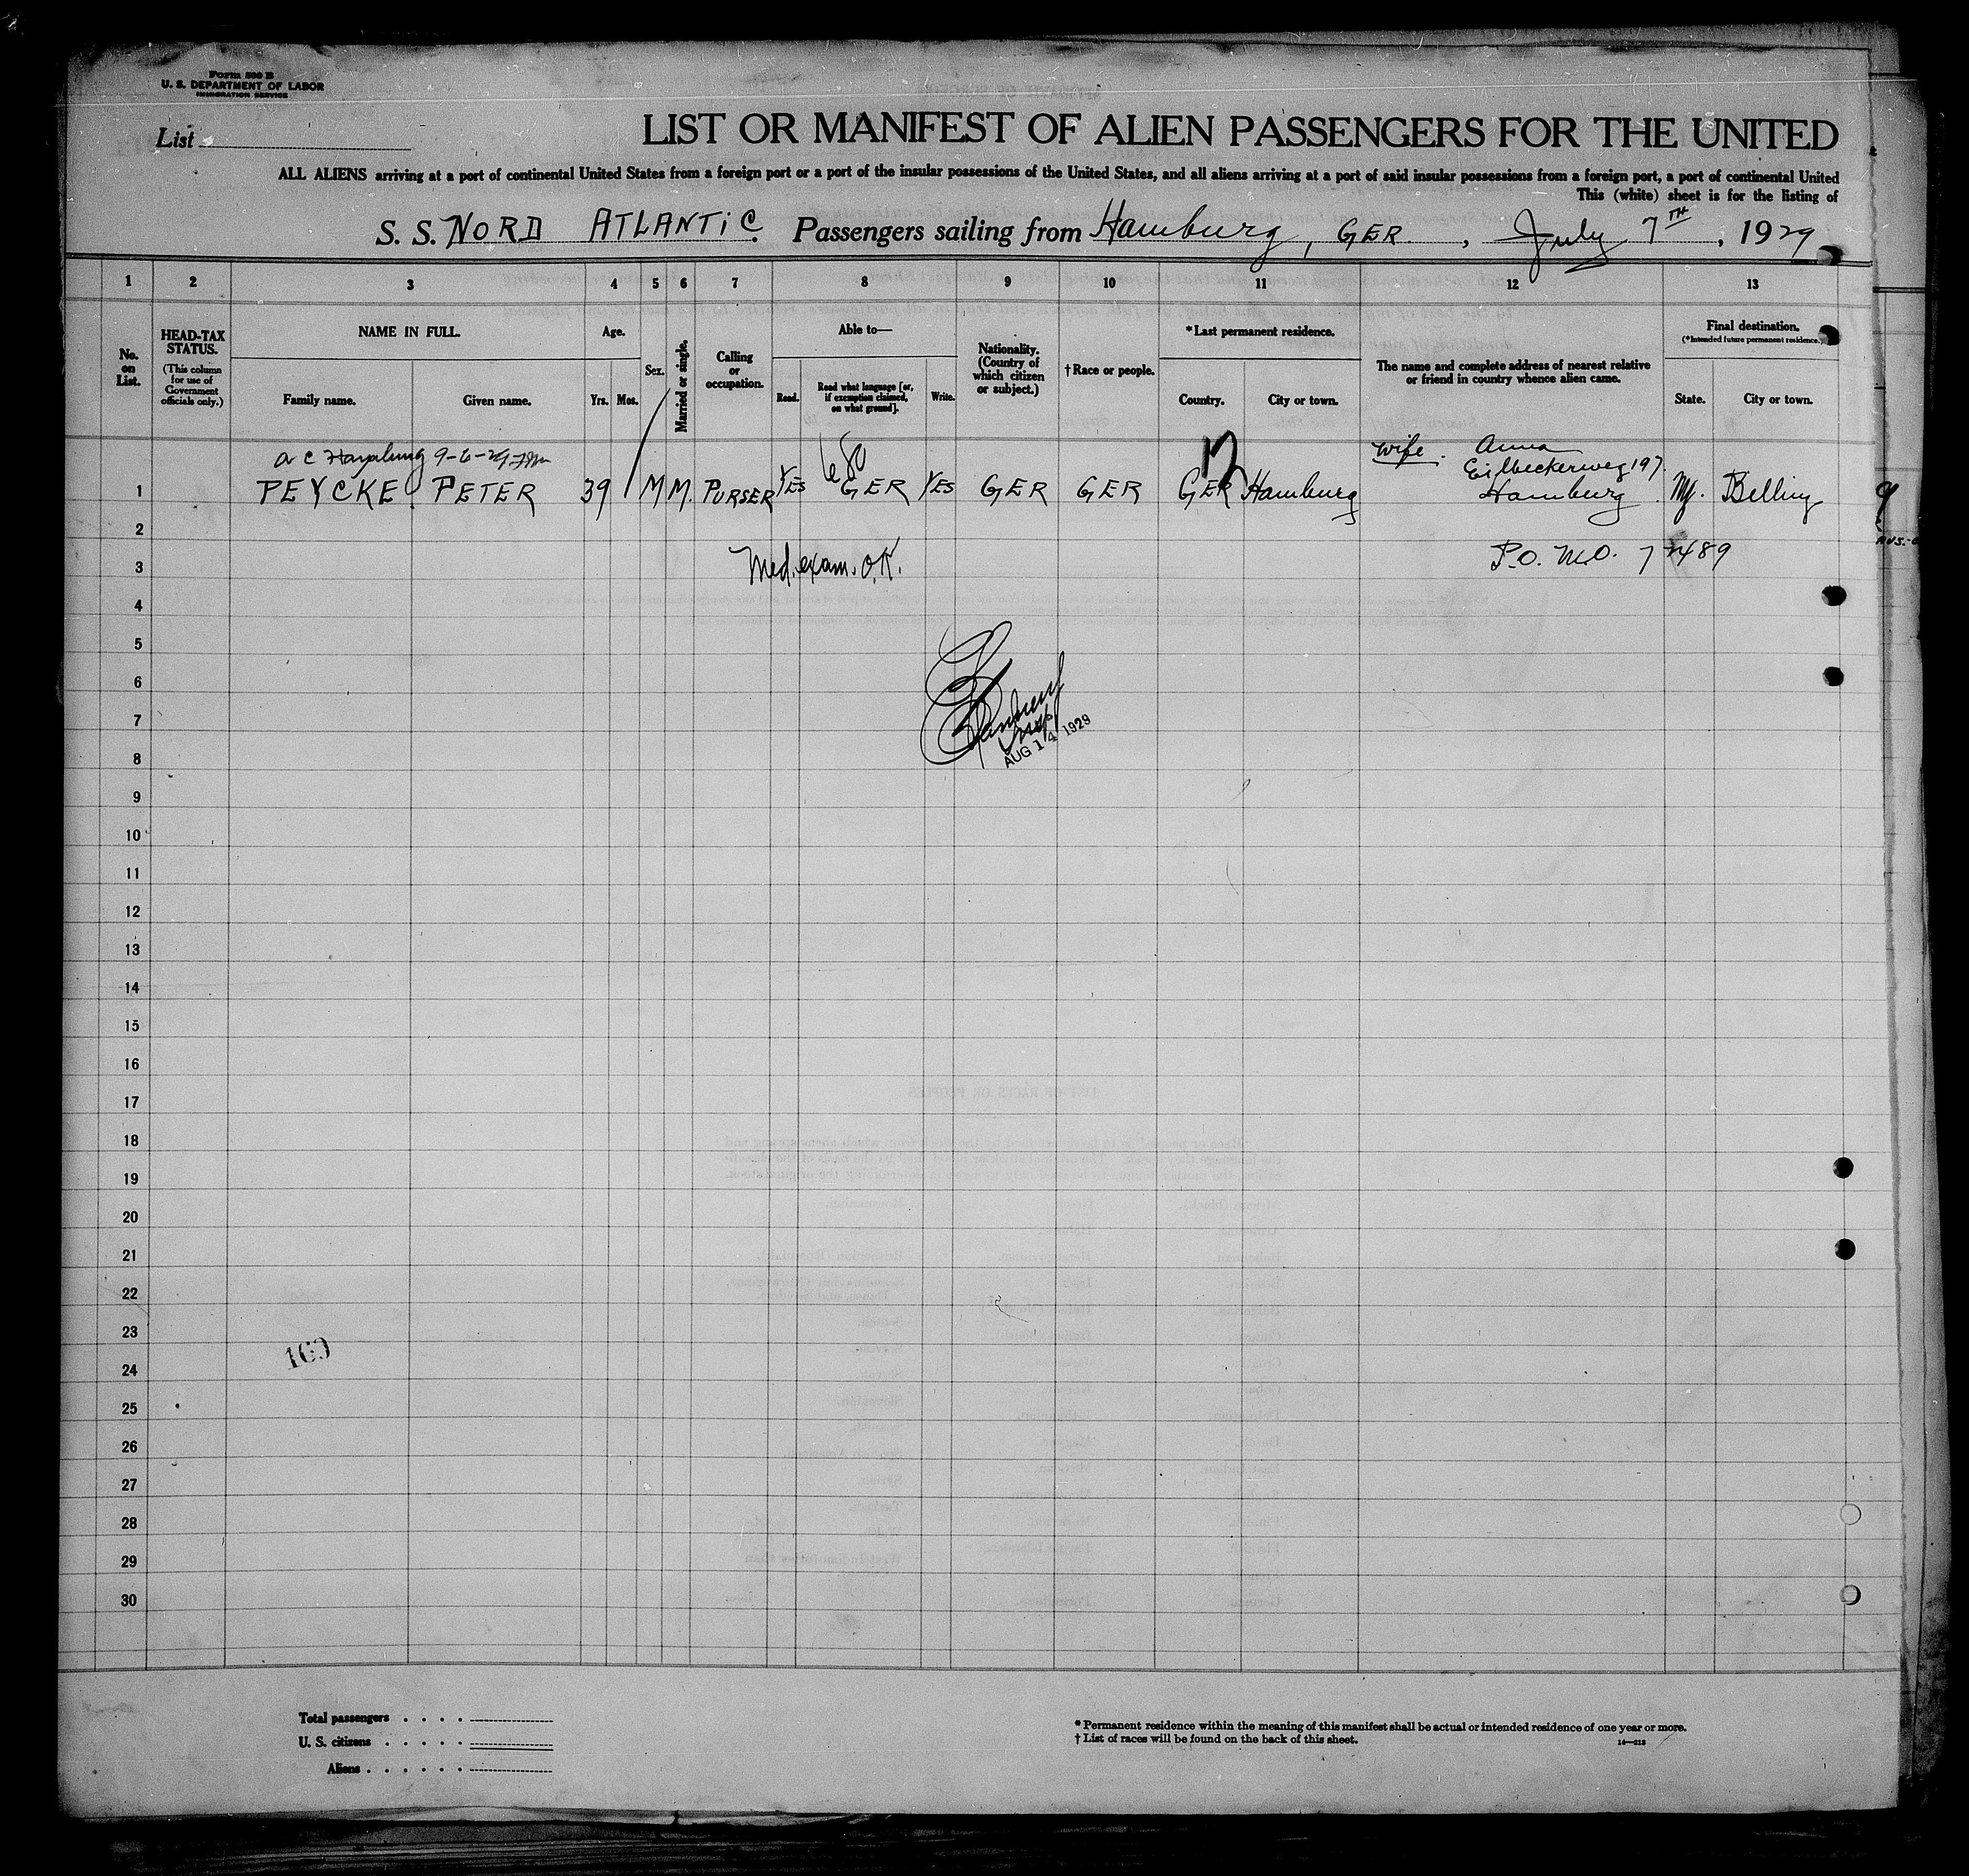 Form 500 B
U. S. DEPARTMENT OF LABOR
IMMIGRATION SERVICE
List
LIST OR MANIFEST OF ALIEN PASSENGERS FOR THE UNITED
ALL ALIENS arriving at a port of continental United States from a foreign port or a port of the insular possessions of the United States, and all aliens arriving at a port of said insular possessions from a foreign port, a port of continental United
This (white) sheet is for the listing of
S. S. NORD ATLANTIC. Passengers sailing from Hamburg, GER., July 7TH, 1929
1 2 3 4 5 6 7 8 9 10 11 12 13
No. on List.
HEAD-TAX STATUS.
(This column for use of Government officials only.)
NAME IN FULL.
Family name. Given name.
Age.
Yrs. Mos.
Sex.
Married or single.
Calling or occupation.
Able to—
Read. Read what language [or, if exemption claimed, on what ground]. Write.
Nationality. (Country of which citizen or subject.)
† Race or people.
* Last permanent residence.
Country. City or town.
The name and complete address of nearest relative or friend in country whence alien came.
Final destination.
(* Intended future permanent residence.)
State. City or town.
9-6-29
680
wife. Anna
Eilbeckerweg 197
1 PEYCKE PETER 39 M M. PURSER YES GER YES GER GER GER Hamburg Hamburg
2
3 Med. exam. O.K. P.O. M.O. 77489
4
5
6
7
AUG 14 1929
8
9
10
11
12
13
14
15
16
17
18
19
20
21
22
23
160
24
25
26
27
28
29
30
Total passengers
U. S. citizens
Aliens
* Permanent residence within the meaning of this manifest shall be actual or intended residence of one year or more.
† List of races will be found on the back of this sheet.
14—213